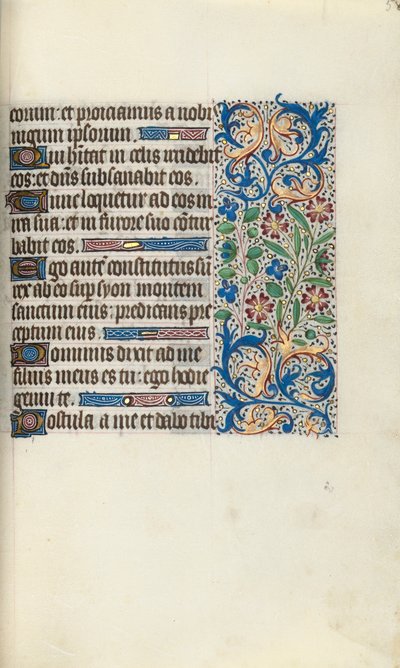 5
eorum: et proiciamus a nobis
iugum ipsorum.
Qui habitat in celis irridebit
eos: et dns subsanabit eos.
Tunc loquetur ad eos in
ira sua: et in furore suo cotur
babit eos.
Ego aute constitutus su
rex ab eo sup syon montem
sanctum eius: predicans pre
ceptum eius.
Dominus dixit ad me
filius meus es tu: ego hodie
genui te.
Postula a me et dabo tibi